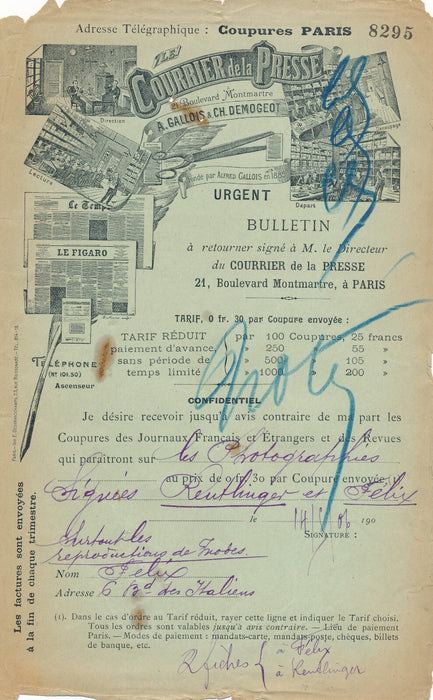 Adresse Télégraphique : Coupures PARIS 8295
LE
COURRIER de la PRESSE
21, Boulevard Montmartre
A. GALLOIS & CH. DEMOGEOT
Direction
Lecture
Découpage
Départ
Fondé par ALFRED GALLOIS en 1889
Le Temps
LE FIGARO
URGENT
BULLETIN
à retourner signé à M. le Directeur
du COURRIER de la PRESSE
21, Boulevard Montmartre, à PARIS
TARIF, 0 fr. 30 par Coupure envoyée :
TARIF RÉDUIT par 100 Coupures, 25 francs
paiement d'avance, » 250 » 55 »
sans période de » 500 » 105 »
temps limité » 1000 » 200 »
TÉLÉPHONE
(N° 101.50)
Ascenseur
Noté
CONFIDENTIEL
Je désire recevoir jusqu'à avis contraire de ma part les
Coupures des Journaux Français et Étrangers et des Revues
qui paraîtront sur les Photographies
au prix de 0 fr. 30 par Coupure envoyée
Signées Reutlinger et Félix
le 190
SIGNATURE :
Surtout les
reproductions de modes.
Nom Félix
Adresse 6 Bd des Italiens
Les factures sont envoyées
à la fin de chaque trimestre.
(1). Dans le cas d'ordre au Tarif réduit, rayer cette ligne et indiquer le Tarif choisi.
Tous les ordres sont valables jusqu'à avis contraire. — Lieu de paiement
Paris. — Modes de paiement : mandats-carte, mandats-poste, chèques, billets
de banque, etc.
2 fiches { à Félix
à Reutlinger